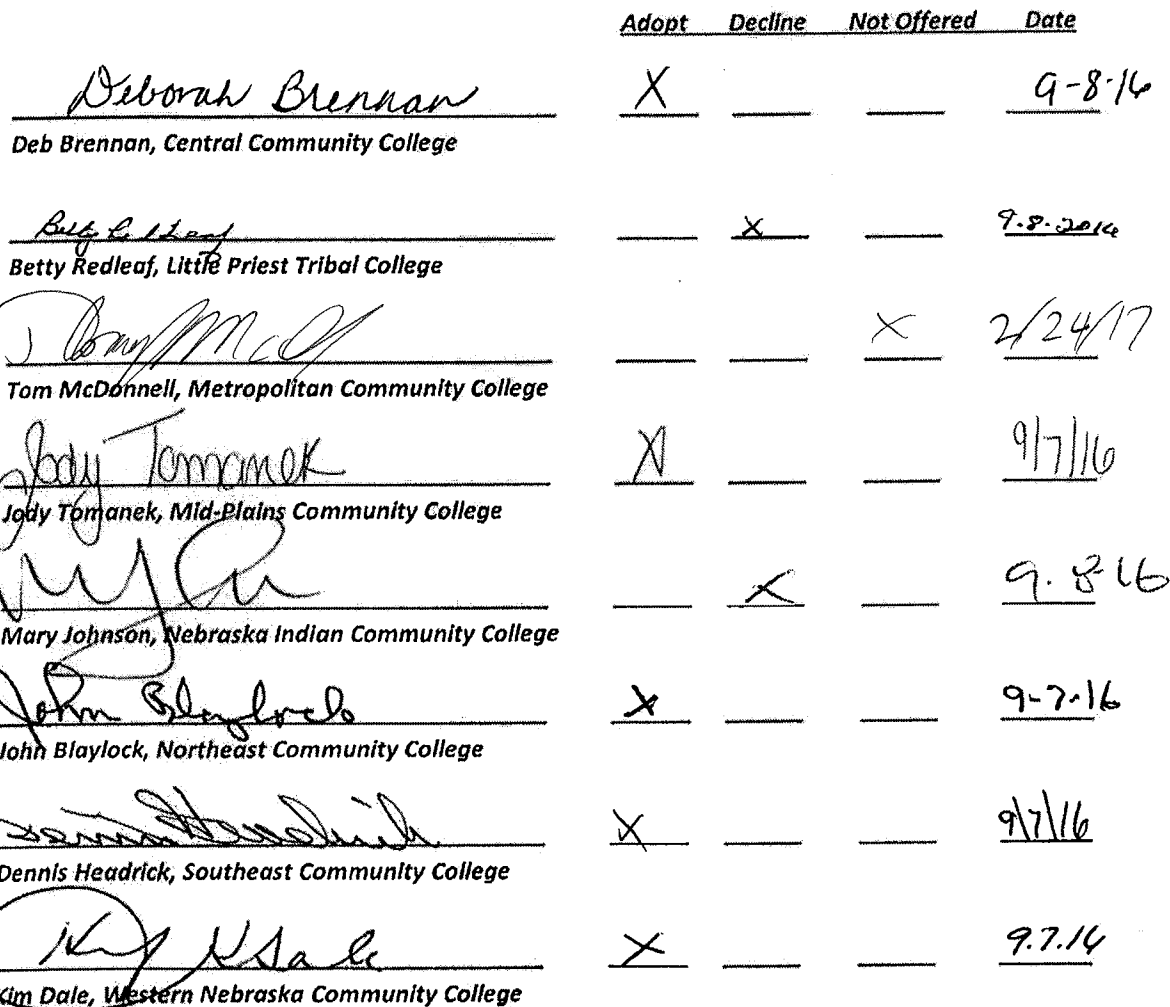 Adopt Decline Not Offered Date
Deborah Brennan X 9-8-16
Deb Brennan, Central Community College
Betty Redleaf X 9.8.2016
Betty Redleaf, Little Priest Tribal College
X 2/24/17
Tom McDonnell, Metropolitan Community College
Jody Tomanek X 9/7/16
Jody Tomanek, Mid-Plains Community College
X 9.8-16
Mary Johnson, Nebraska Indian Community College
John Blaylock X 9-7-16
John Blaylock, Northeast Community College
Dennis Headrick X 9/7/16
Dennis Headrick, Southeast Community College
X 9.7.16
Kim Dale, Western Nebraska Community College